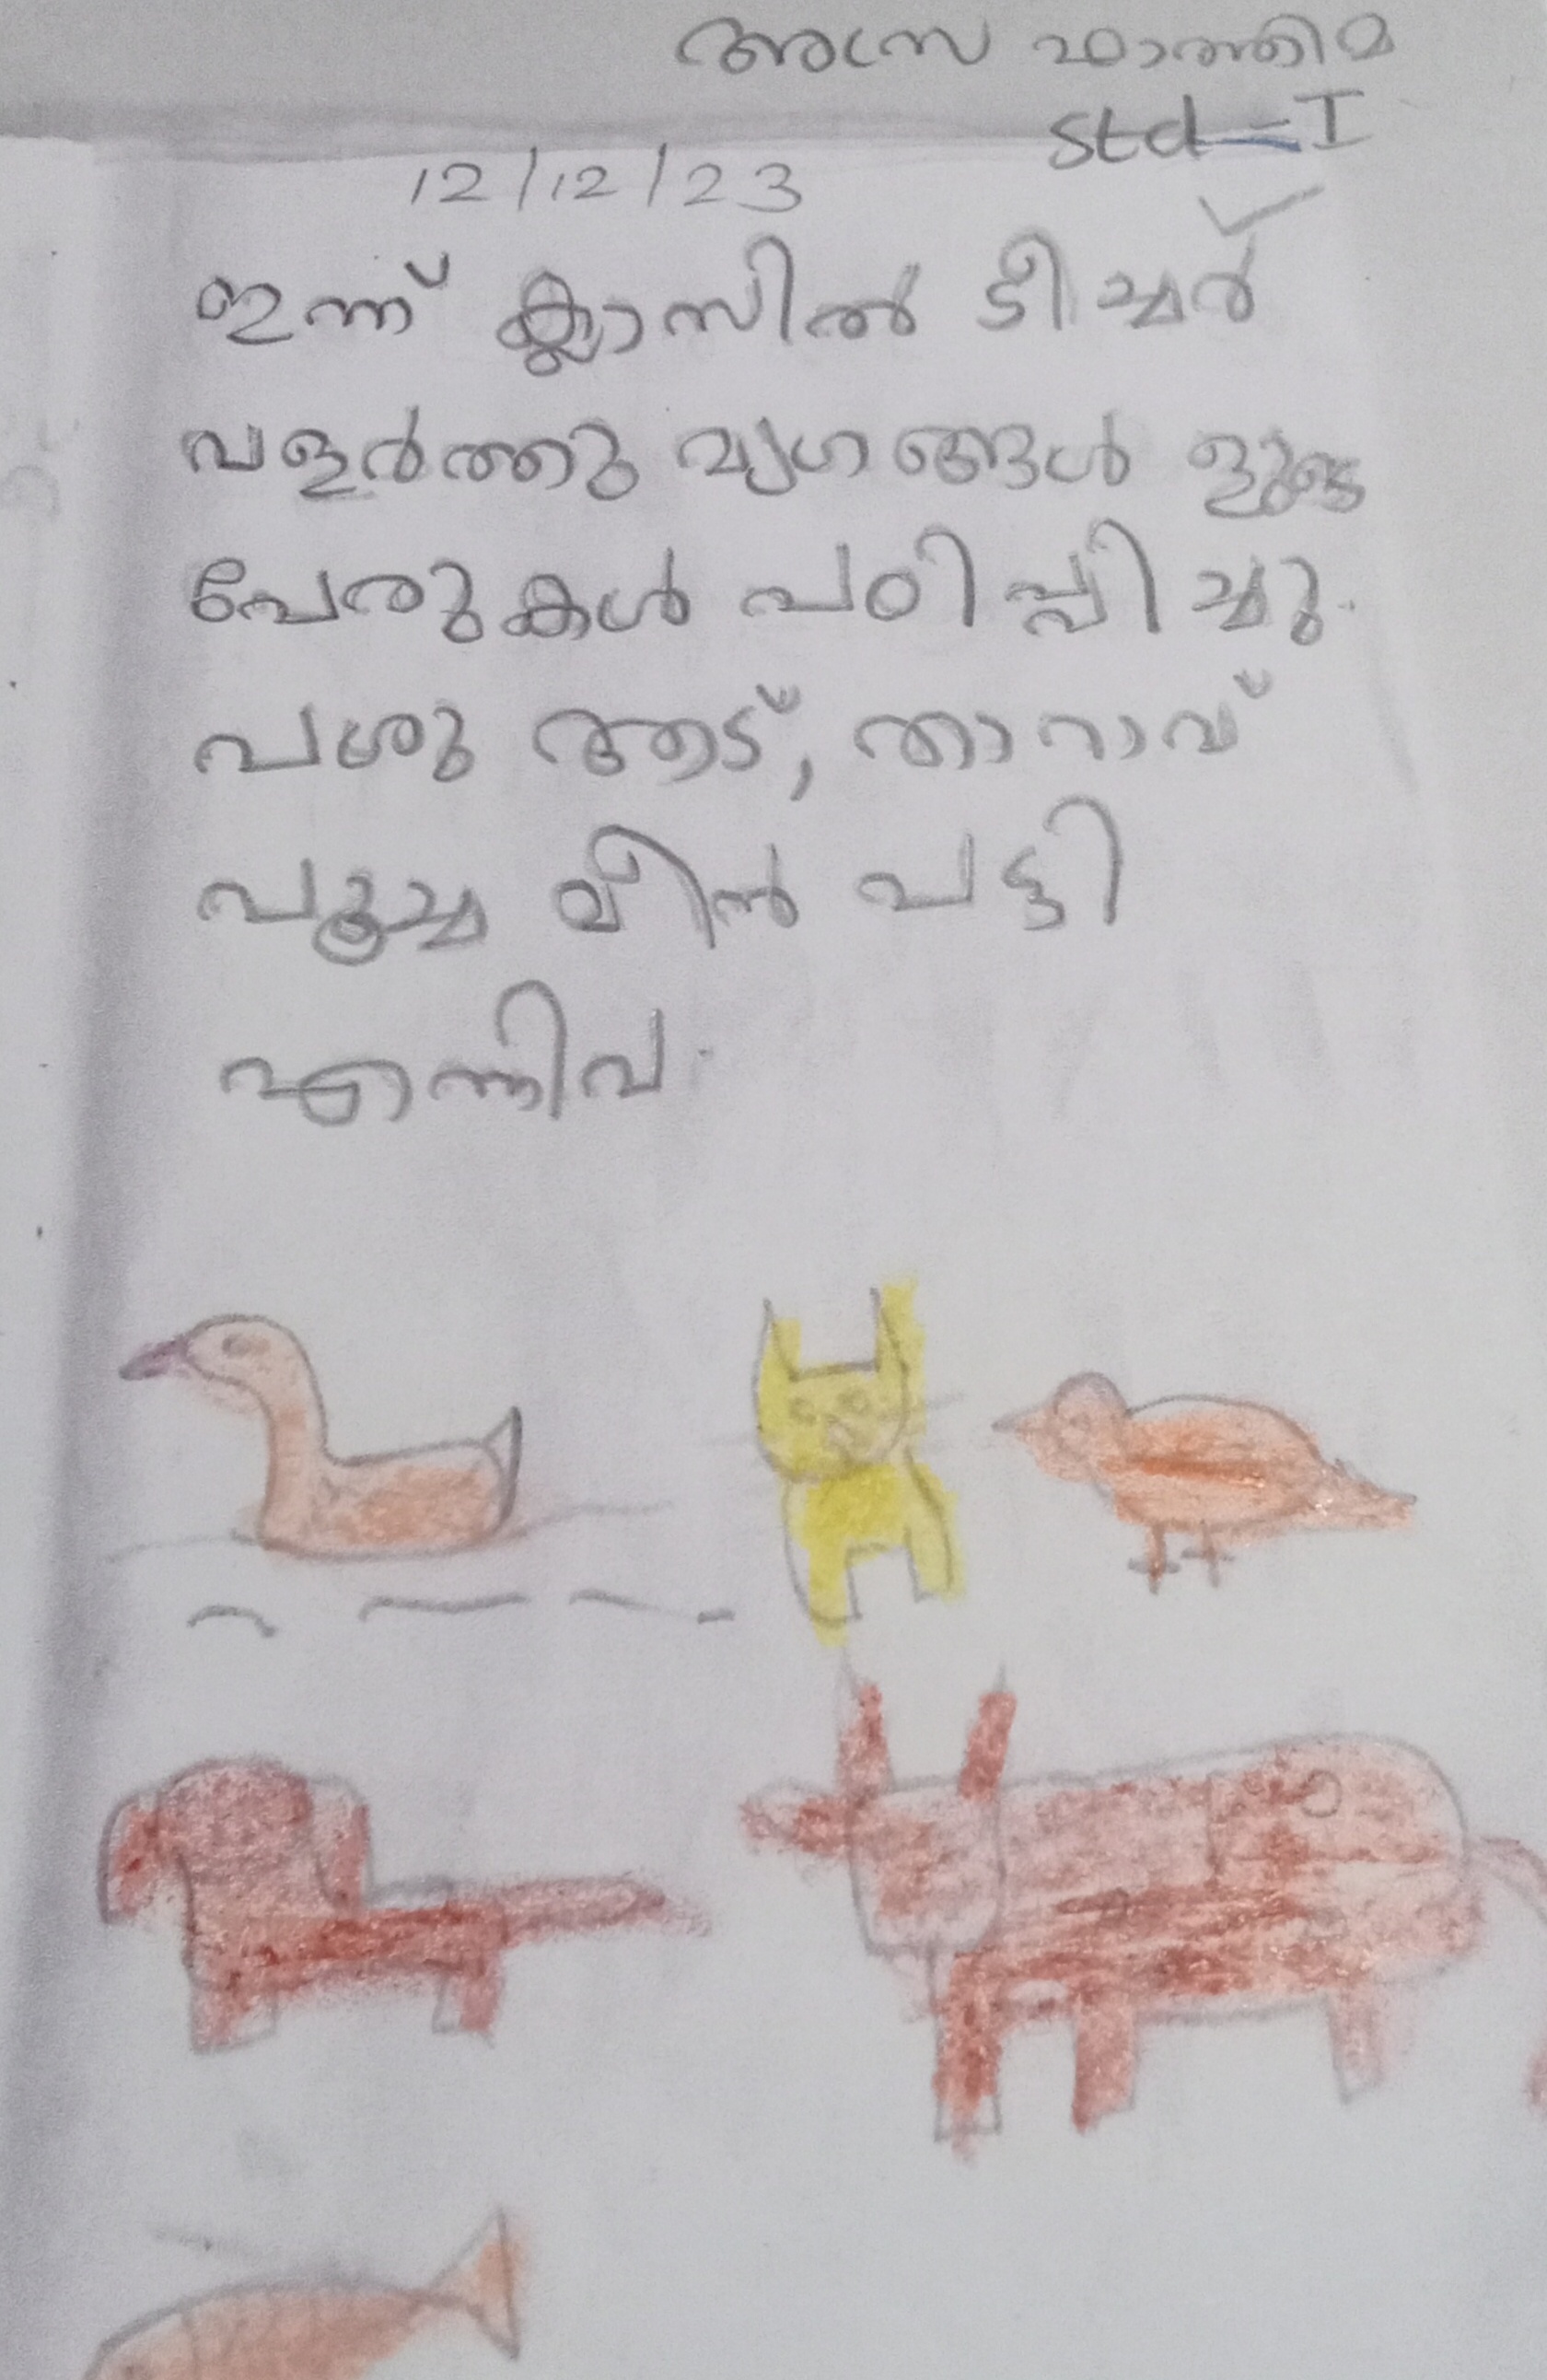 ഫാത്തിമ
Std - I
12/12/23
ഇന്ന് ക്ലാസിൽ ടീച്ചർ
വളർത്തു മൃഗങ്ങൾ
പേരുകൾ പഠിപ്പിച്ചു.
പശു ആട്, താറാവ്
പൂച്ച മീൻ പട്ടി
എന്നിവ.